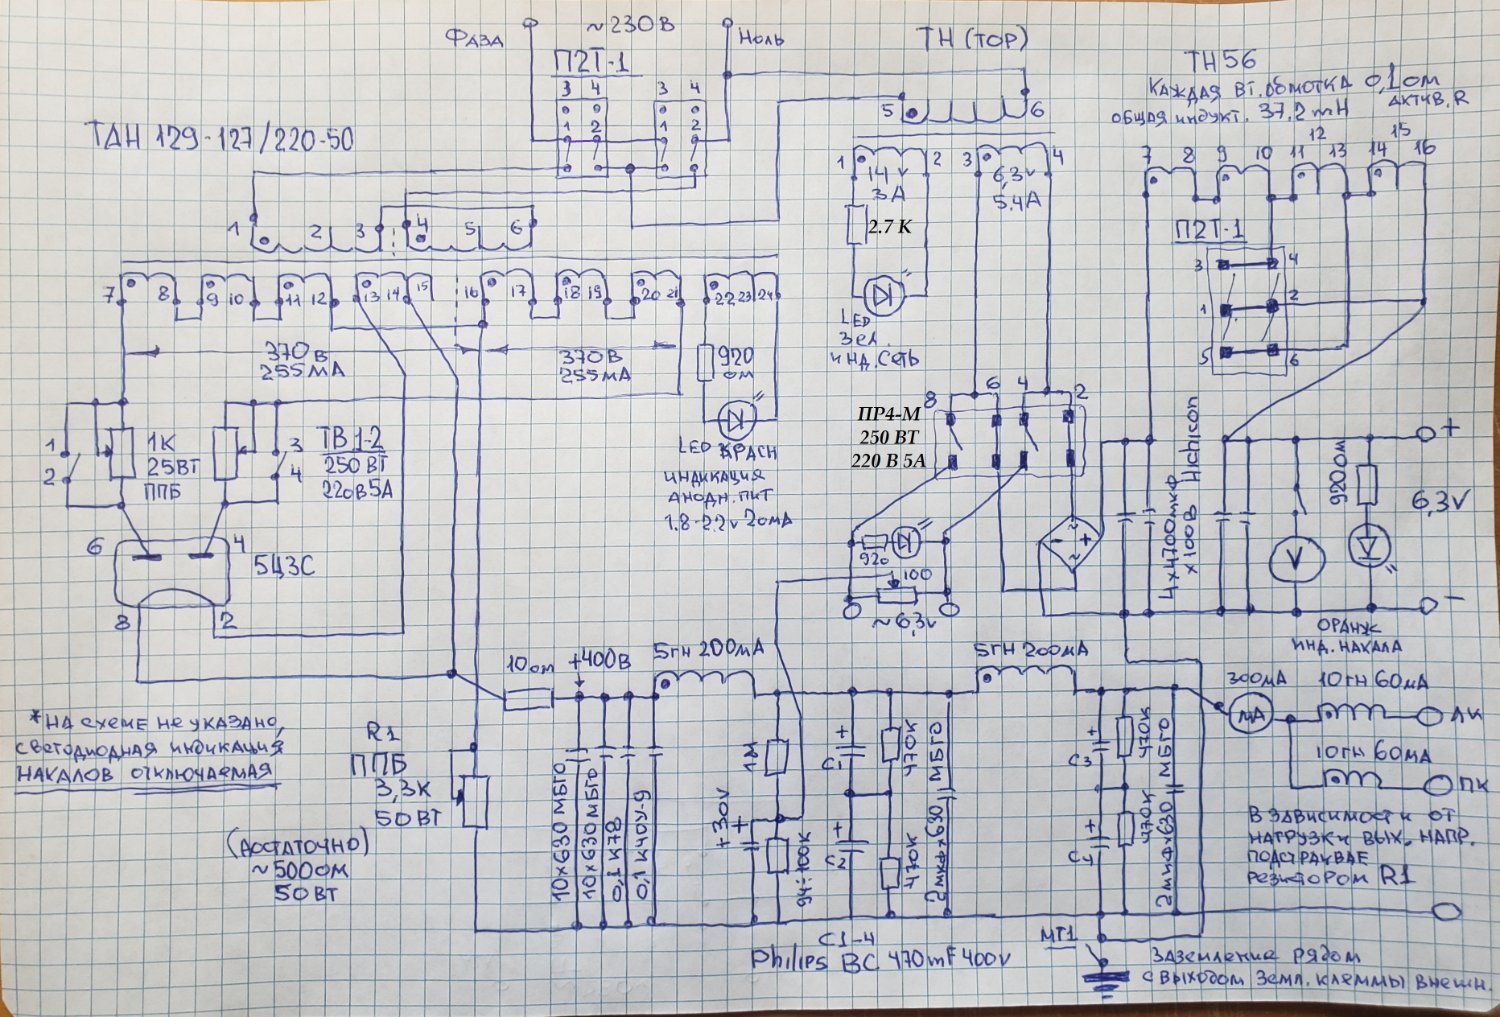 Фаза
~230В
Ноль
П2Т-1
3 4
3 4
1 2
1 2
ТН (ТОР)
5
6
ТН56
Каждая вт. обмотка 0,1 ом
актив. R
общая индукт. 37,2 mH
ТАН 129-127/220-50
1
2
3
4
5
6
1
2
3
4
14 v
3А
6,3v
5,4А
2.7 К
LED
зел.
инд. сеть
7
8
9
10
11
12
13
14
15
16
П2Т-1
3
4
1
2
5
6
7
8
9
10
11
12
13
14
15
16
17
18
19
20
21
22
23
24
370в
255мА
370в
255мА
920
ом
LED красн
индикация
анодн. пит
1.8-2.2v 20мА
1
2
1К
25Вт
ППБ
3
4
ТВ1-2
250 Вт
220в 5А
6
4
5Ц3С
8
2
8
6
4
2
ПР4-М
250 ВТ
220 В 5А
920
100
~6,3v
-
+
~
~
4х4700мкф
х100В Nichicon
V
920ом
+
6,3V
-
оранж
инд. накала
10ом
+400В
5гн 200мА
5гн 200мА
300мА
мА
10гн 60мА
ЛК
10гн 60мА
ПК
*На схеме не указано,
светодиодная индикация
накалов отключаемая
R1
ППБ
3,3К
50Вт
(достаточно)
~500ом
50Вт
10х630 МБГО
10х630МБГО
0,1 К78
0,1 К40У-9
1М
+30V
+
94÷100К
+
С1
+
С2
470К
470К
2мкфх630 МБГО
+
С3
+
С4
470К
470К
2мкфх630 МБГО
В зависимости от
нагрузки вых. напр.
подстраивае
резистором R1
С1-4
Philips BC 470mF 400v
МТ1
Заземление рядом
с выходом земл. клеммы внешн.